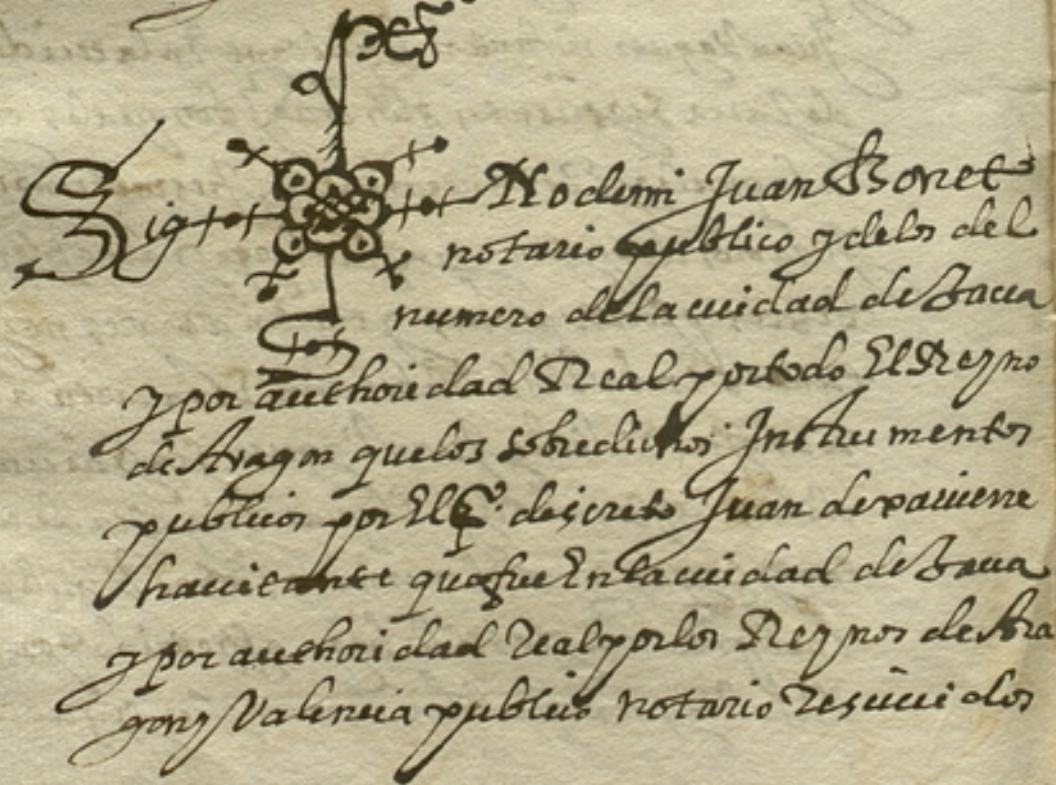 Sig No de mi Juan Bonet
notario publico y de los del
numero de la ciudad de Jacca
y por authoridad Real por todo El Reyno
de Aragon que los sobredichos Instrumentos
publicos por El q.º discreto Juan de xavierre
havitante que fue En la ciudad de Jacca
y por authoridad Real por los Reynos de Ara
gon y Valencia publico notario Resciuidos